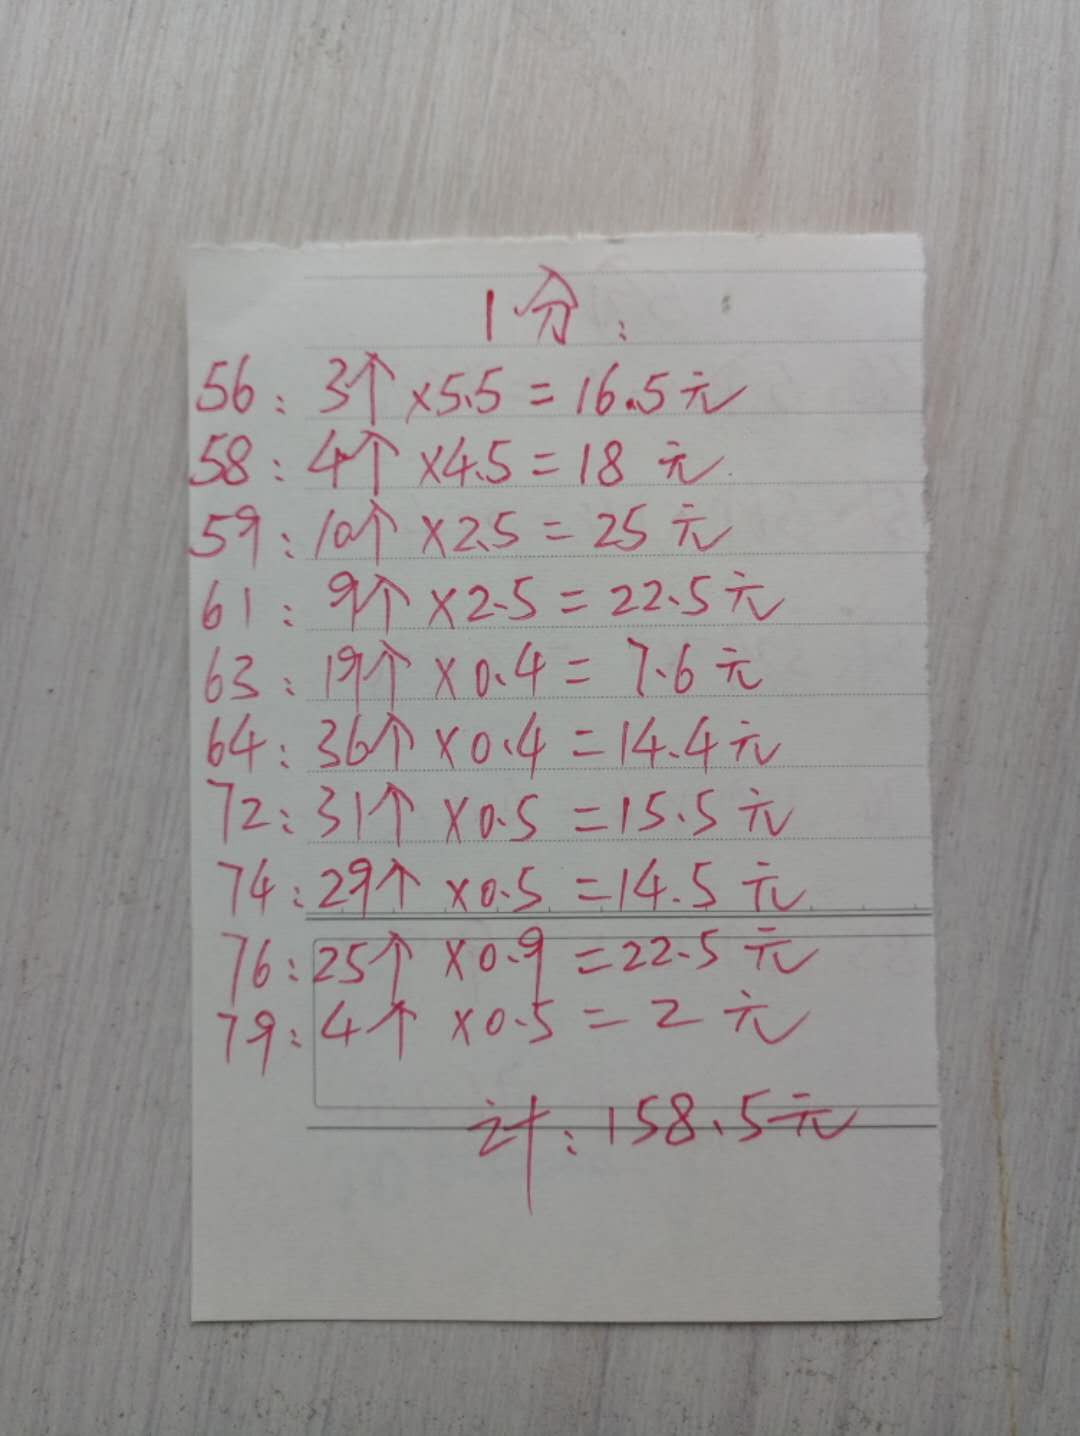 1分:
56:3个×5.5=16.5元
58:4个×4.5=18元
59:10个×2.5=25元
61:9个×2.5=22.5元
63:19个×0.4=7.6元
64:36个×0.4=14.4元
72:31个×0.5=15.5元
74:29个×0.5=14.5元
76:25个×0.9=22.5元
79:4个×0.5=2元
计:158.5元